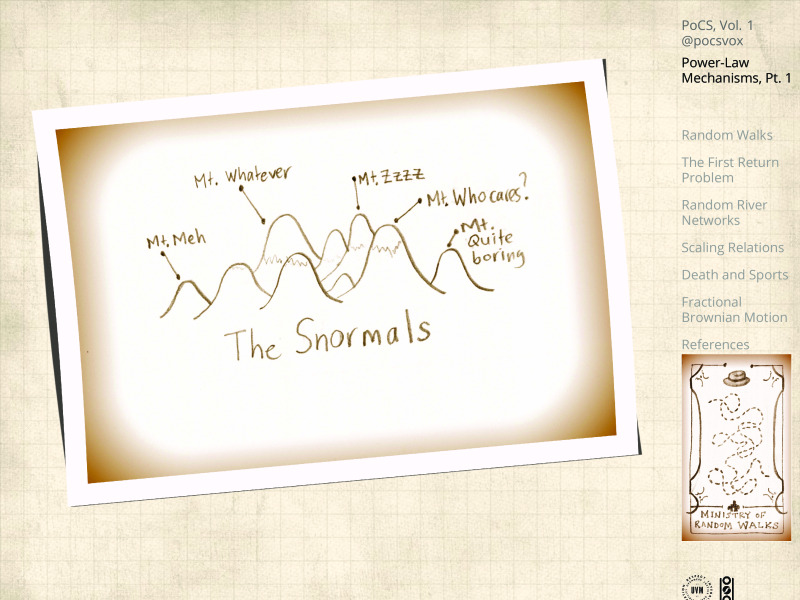 PoCS, Vol. 1
@pocsvox
Power-Law
Mechanisms, Pt. 1
Random Walks
The First Return
Problem
Random River
Networks
Scaling Relations
Death and Sports
Fractional
Brownian Motion
References
Mt. Meh
Mt. Whatever
Mt. Zzzz
Mt. Who cares?
Mt.
Quite
boring
The Snormals
MINISTRY OF
RANDOM WALKS
UVM